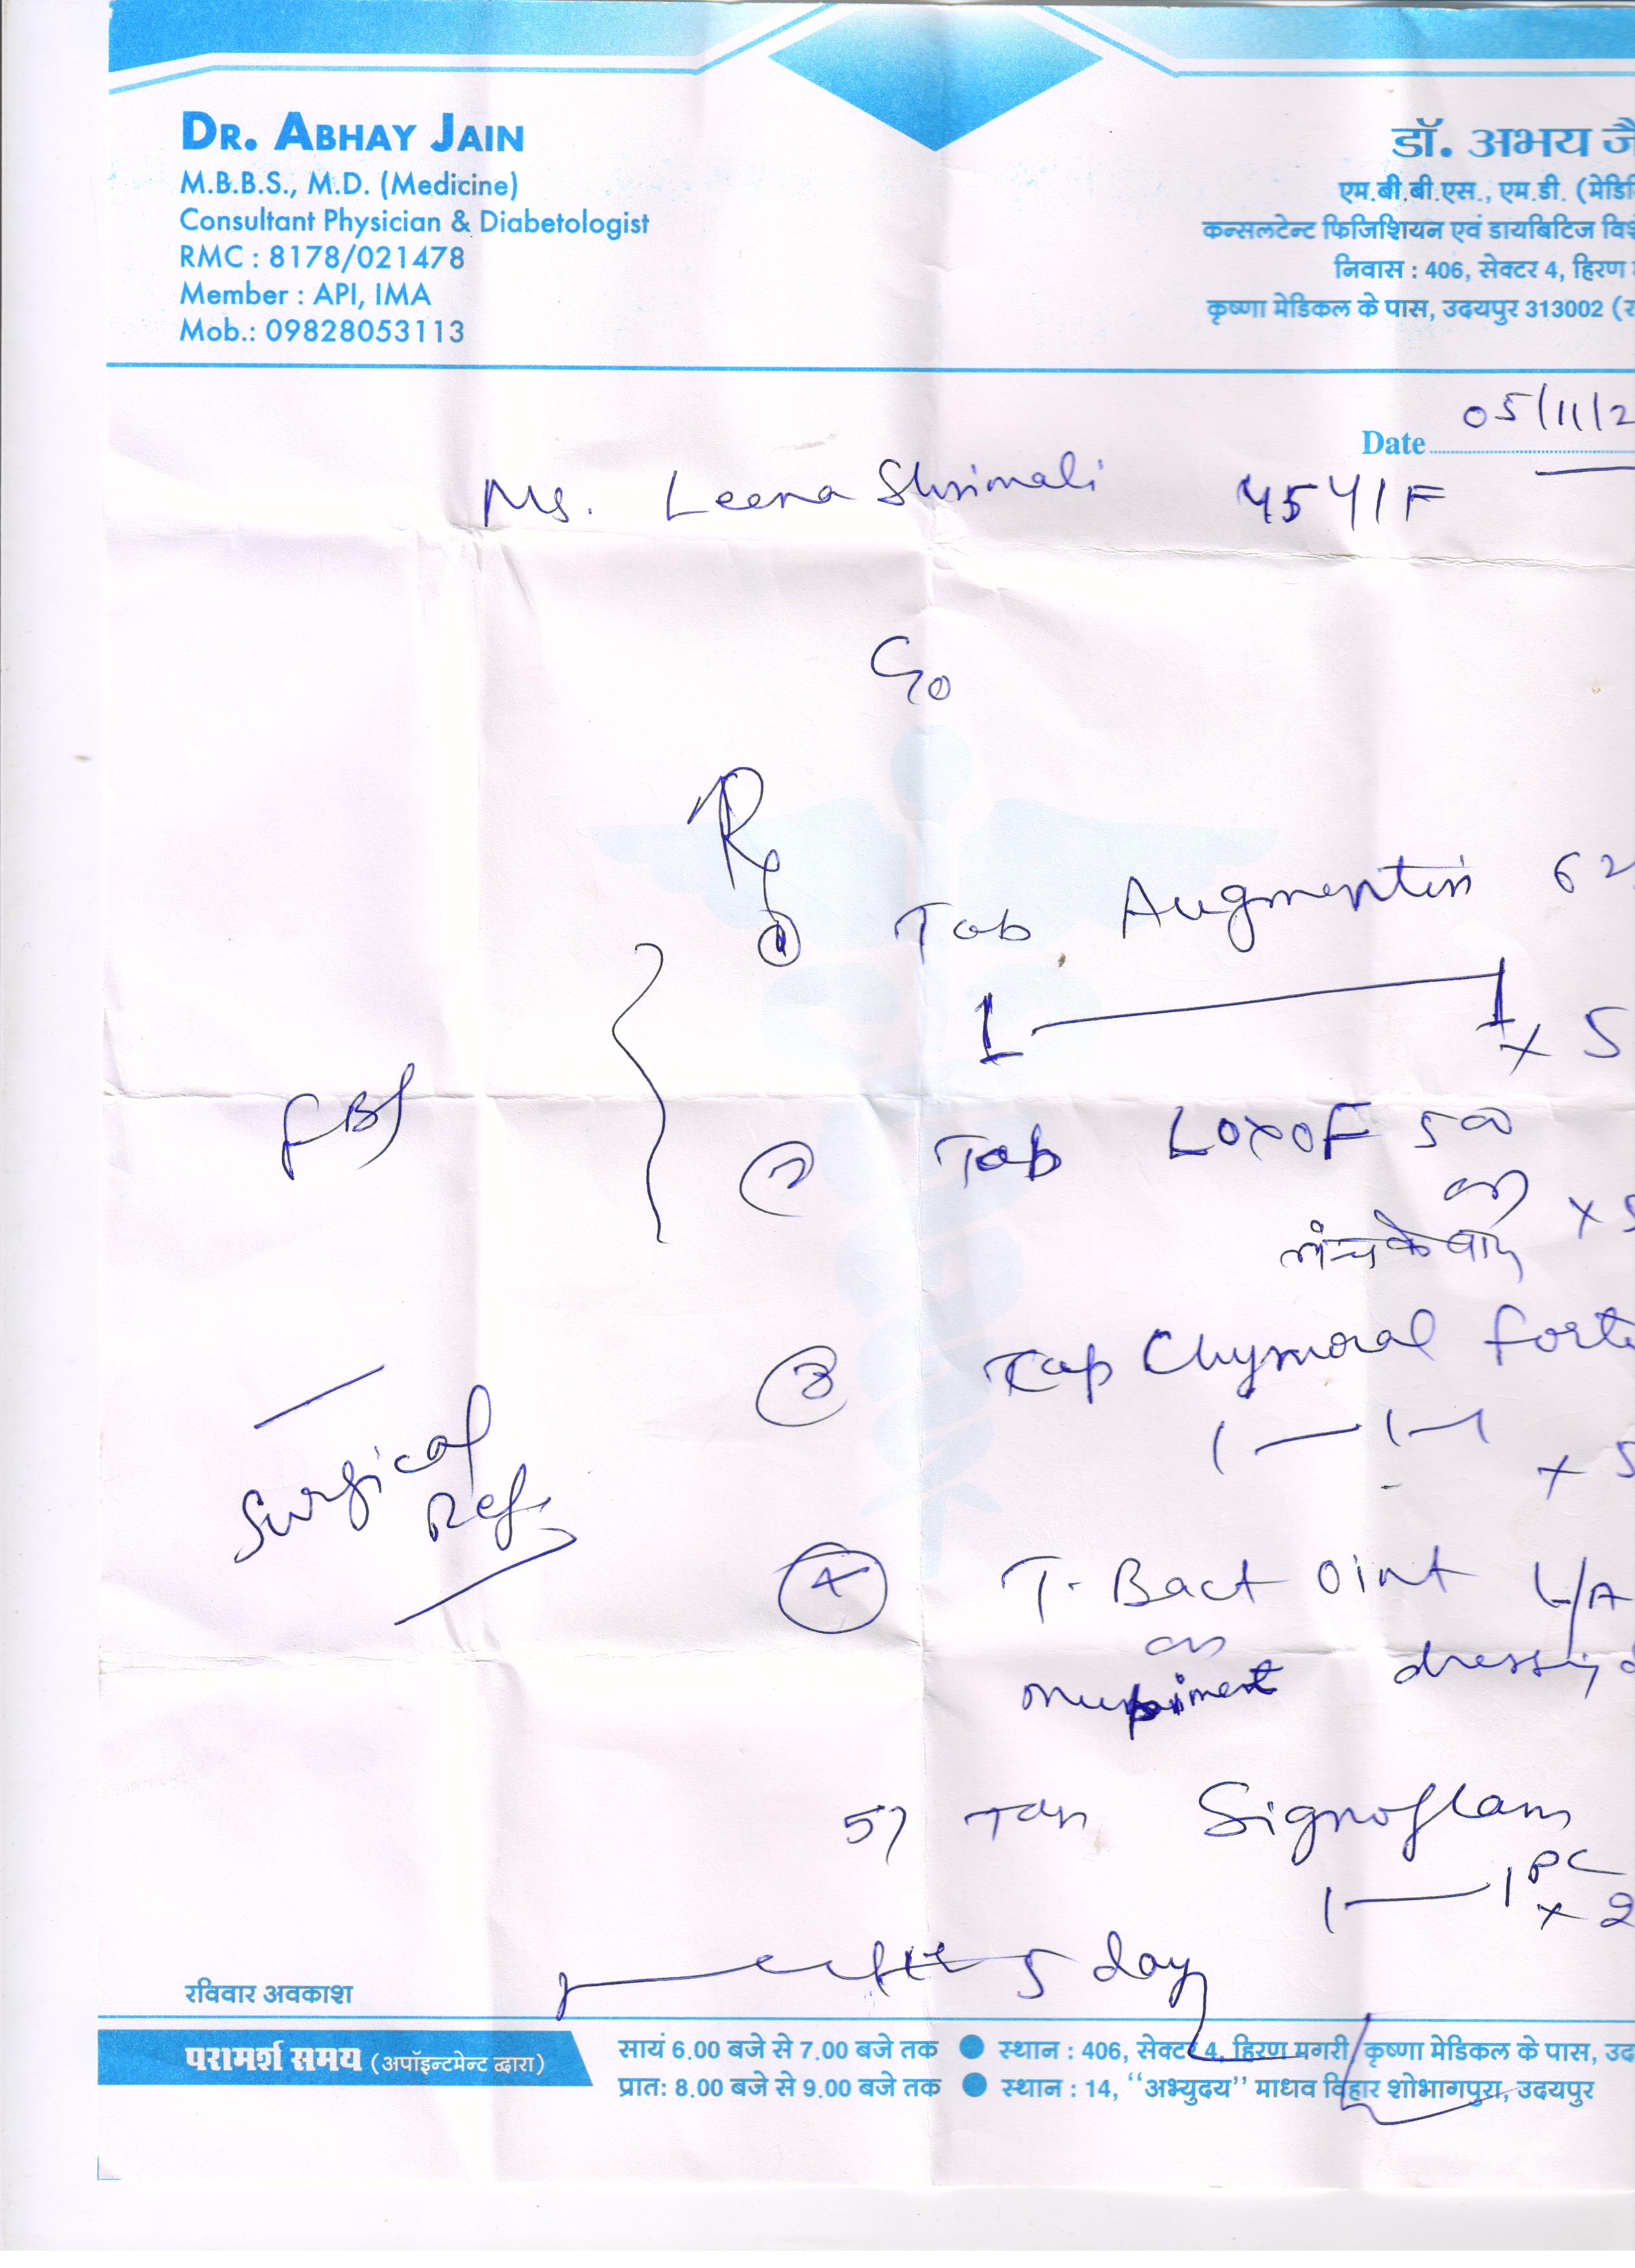 DR. ABHAY JAIN
M.B.B.S., M.D. (Medicine)
Consultant Physician & Diabetologist
RMC : 8178/021478
Member : API, IMA
Mob.: 09828053113
डॉ. अभय जै
एम.बी.बी.एस., एम.डी. (मेडि
कन्सलटेन्ट फिजिशियन एवं डायबिटिज विशे
निवास : 406, सेक्टर 4, हिरण
कृष्णा मेडिकल के पास, उदयपुर 313002 (र
Date 05/11/2
Ms. Leena Shrimali 45Y/F
C/o
Rx
① Tab Augmentin 62
1 — 1 x 5
FBS
② Tab LOXOF 500
OD x 5
लंच के बाद
③ Tab Chymoral forte
1 — 1 — 1 x 5
Surgical Ref
④ T-Bact Oint L/A
dressing
5) Tab Signoflam
1 — 1 PC x 2
after 5 day
रविवार अवकाश
परामर्श समय (अपॉइन्टमेन्ट द्वारा)
सायं 6.00 बजे से 7.00 बजे तक ● स्थान : 406, सेक्टर 4, हिरण मगरी, कृष्णा मेडिकल के पास, उद
प्रातः 8.00 बजे से 9.00 बजे तक ● स्थान : 14, "अभ्युदय" माधव विहार शोभागपुरा, उदयपुर